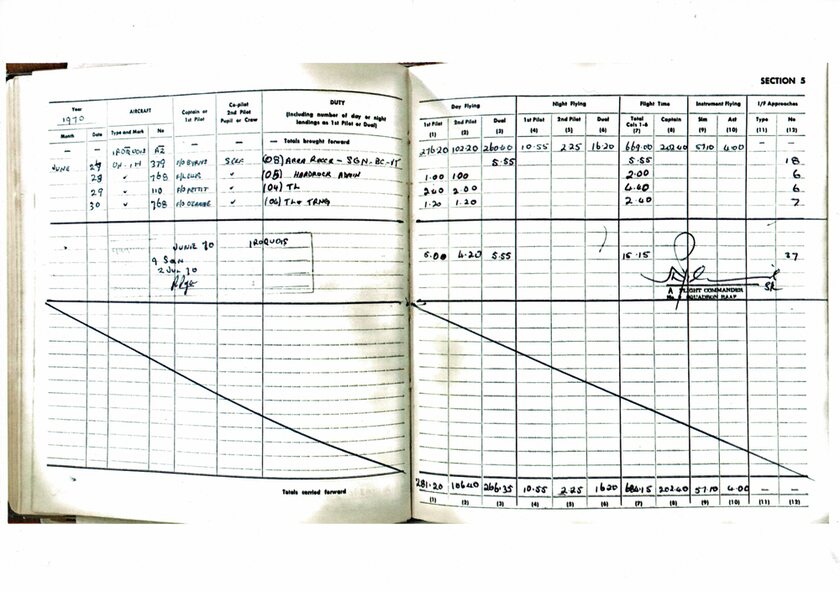 SECTION 5
Year 1970 AIRCRAFT Captain or 1st Pilot Co-pilot 2nd Pilot Pupil or Crew DUTY (Including number of day or night landings as 1st Pilot or Dual) Day Flying Night Flying Flight Time Instrument Flying I/F Approaches
Month Date Type and Mark No 1st Pilot 2nd Pilot Dual 1st Pilot 2nd Pilot Dual Total Cols 1-6 Captain Sim Act Type No
(1) (2) (3) (4) (5) (6) (7) (8) (9) (10) (11) (12)
— — IROQUOIS A2 — — — Totals brought forward 276.20 102.20 260.40 10.55 2.25 16.20 669.00 202.40 57.10 4.00 — —
JUNE UH-1H 379 SELF (08) AREA RECCE - SGN-BC-IT 5.55 5.55 18
28 " 768 " (05) HARDROCK AGAIN 1.00 1.00 2.00 6
29 " 110 F/O PETTIT " (04) TL 2.40 2.00 4.40 6
30 " 768 " (04) TL + TRNG 1.20 1.20 2.40 7
JUNE 70 IROQUOIS
9 SQN 5.00 4.20 5.55 15.15 37
2 JUL 70
A FLIGHT COMMANDER
No. 9 SQUADRON RAAF
Totals carried forward 281.20 106.40 266.35 10.55 2.25 16.20 684.15 202.40 57.10 4.00 — —
(1) (2) (3) (4) (5) (6) (7) (8) (9) (10) (11) (12)